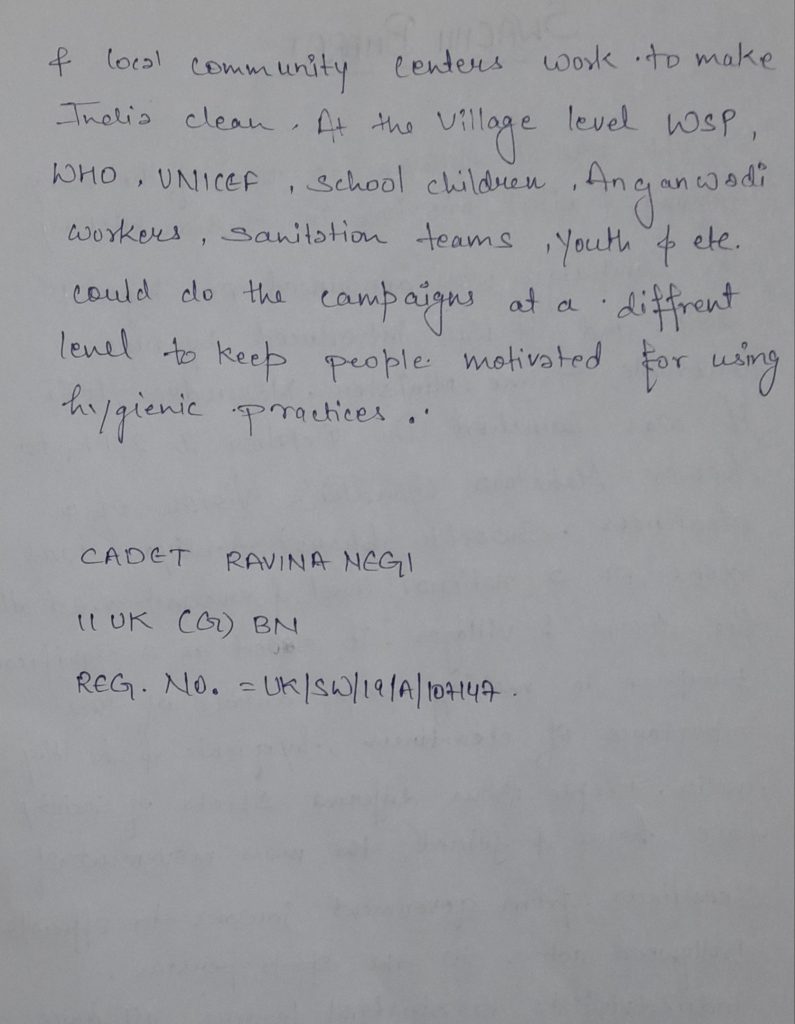 & local community centers work to make
India clean. At the Village level WSP,
WHO, UNICEF, School children, Anganwadi
workers, sanitation teams, youth & etc.
could do the campaigns at a diffrent
level to keep people motivated for using
hygienic practices.
CADET RAVINA NEGI
11 UK (G) BN
REG. NO. = UK/SW/19/A/107147.